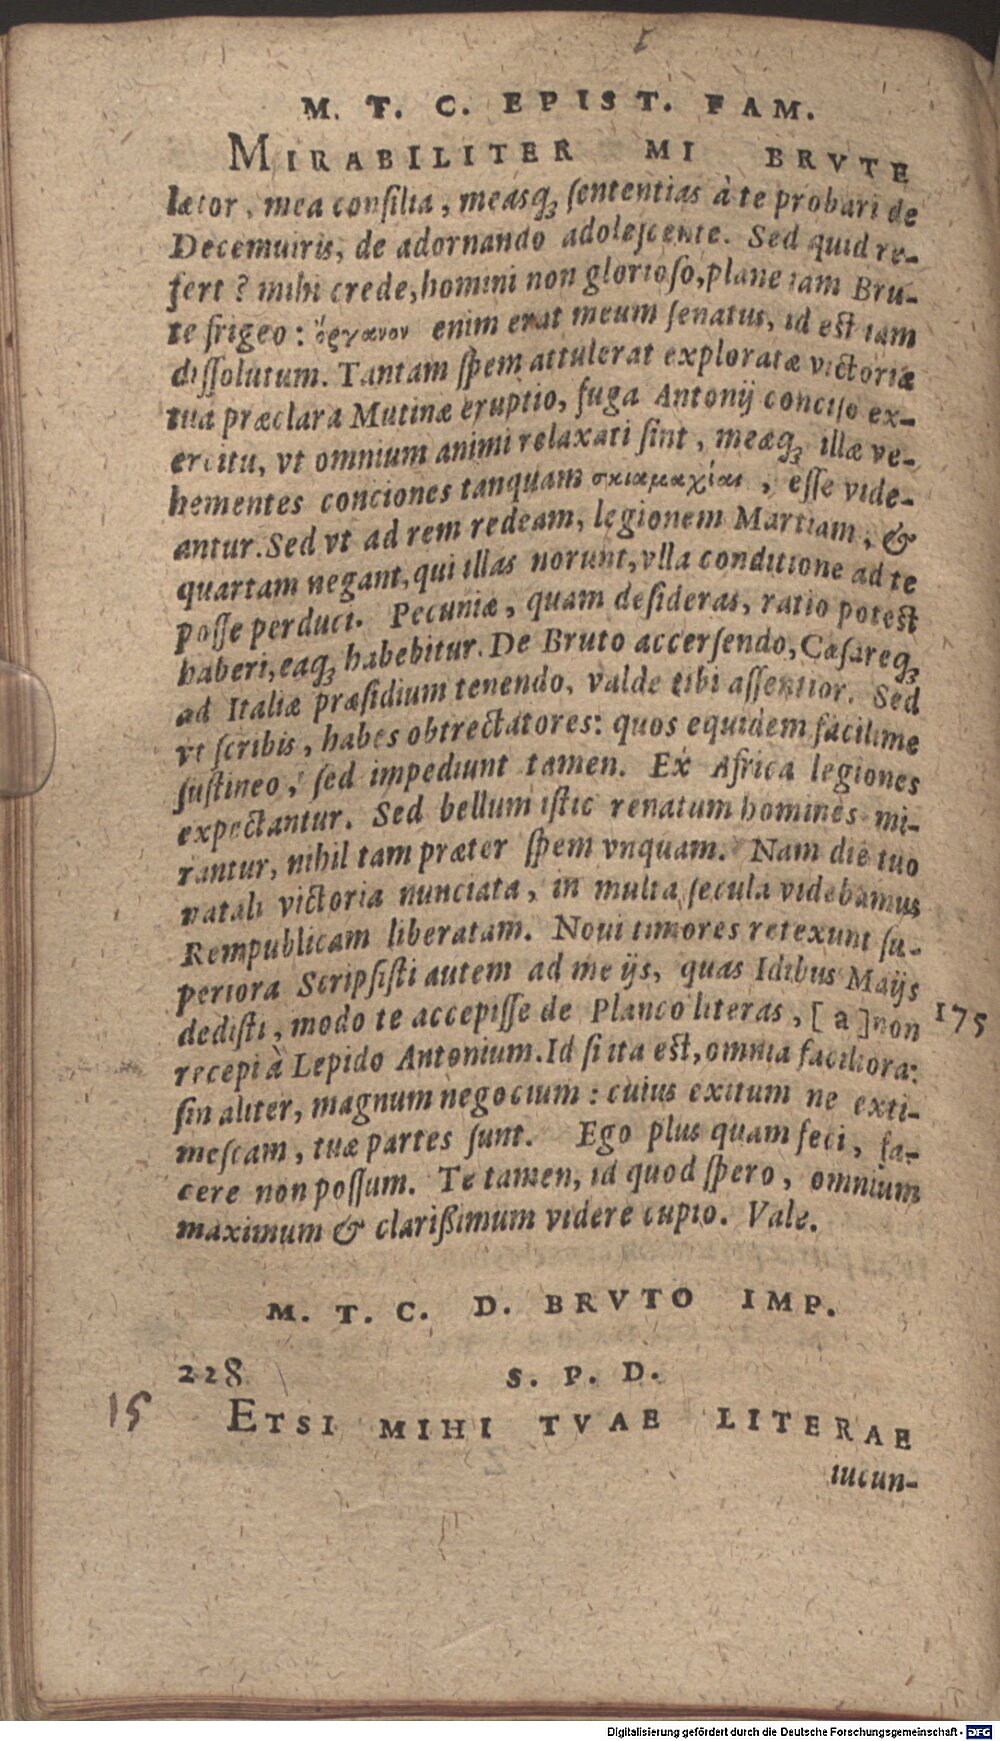 M. T. C. EPIST. FAM.
MIRABILITER MI BRVTE
lætor, mea consilia, measqꝫ sententias à te probari de
Decemuiris, de adornando adolescente. Sed quid re-
fert? mihi crede, homini non glorioso, plane iam Bru-
te frigeo: ὄργανον enim erat meum senatus, id est iam
dissolutum. Tantam spem attulerat exploratæ victoriæ
tua præclara Mutinæ eruptio, fuga Antonij conciso ex-
ercitu, vt omnium animi relaxati sint, meæqꝫ illæ ve-
hementes conciones tanquam σκιαμαχίαι, esse vide-
antur. Sed vt ad rem redeam, legionem Martiam, &
quartam negant, qui illas norunt, vlla conditione ad te
posse perduci. Pecuniæ, quam desideras, ratio potest
haberi, eaqꝫ habebitur. De Bruto accersendo, Cæsareqꝫ
ad Italiæ præsidium tenendo, valde tibi assentior. Sed
vt scribis, habes obtrectatores: quos equidem facilime
sustineo, sed impediunt tamen. Ex Africa legiones
expectantur. Sed bellum istic renatum homines mi-
rantur, nihil tam præter spem vnquam. Nam die tuo
natali victoria nunciata, in multa secula videbamus
Rempublicam liberatam. Noui timores retexunt su-
periora Scripsisti autem ad me ijs, quas Idibus Maijs
dedisti, modo te accepisse de Planco literas, [a] non 175
recepi à Lepido Antonium. Id si ita est, omnia faciliora:
sin aliter, magnum negocium: cuius exitum ne exti-
mescam, tuæ partes sunt. Ego plus quam feci, fa-
cere non possum. Te tamen, id quod spero, omnium
maximum & clarißimum videre cupio. Vale.
M. T. C. D. BRVTO IMP.
228 S. P. D.
15 ETSI MIHI TVAE LITERAE
iucun-
Digitalisierung gefördert durch die Deutsche Forschungsgemeinschaft - DFG